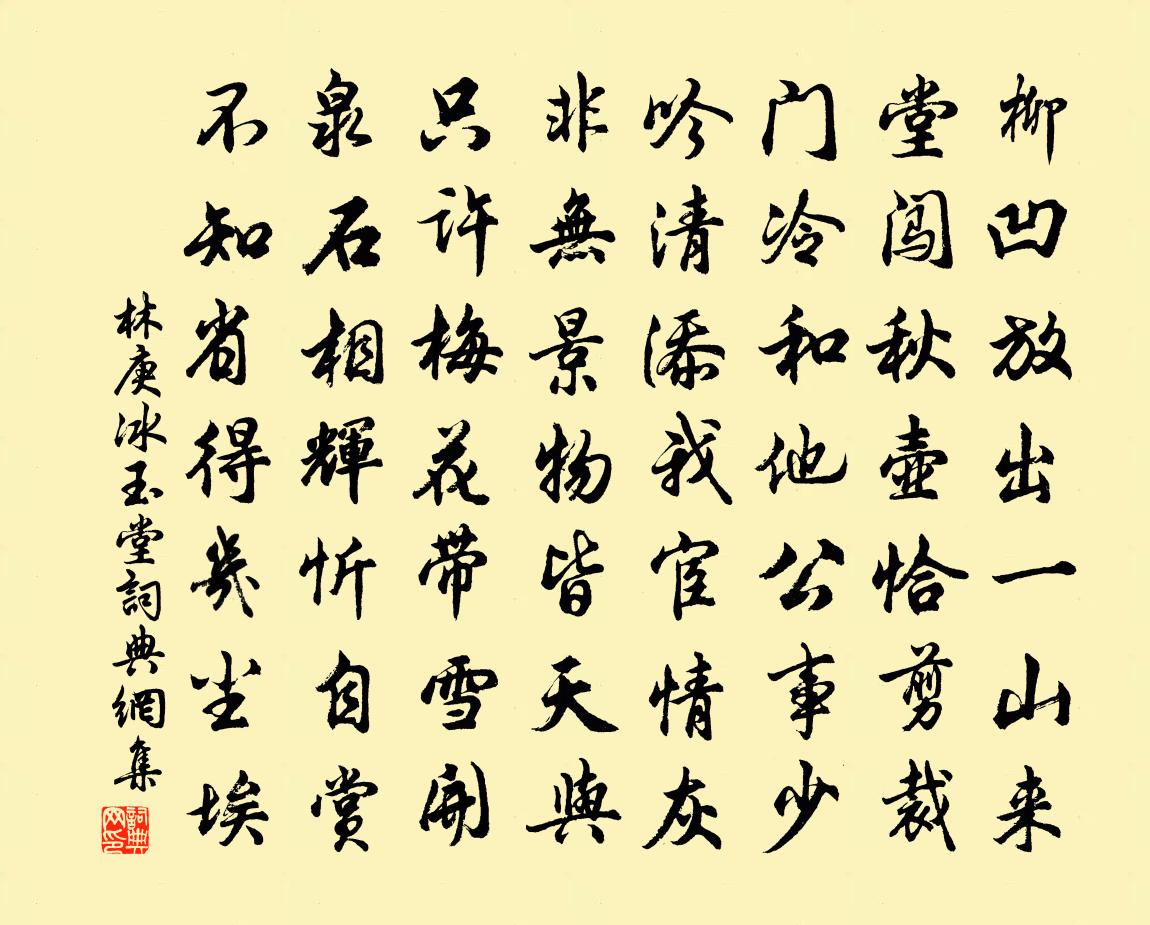 柳凹放出一山来
堂闯秋壶恰剪裁
门冷和他公事少
吟清添我宦情灰
非無景物皆天與
只许梅花带雪開
泉石相輝忻自賞
不知省得幾尘埃
林庚冰玉堂詞典網集
詞典网印